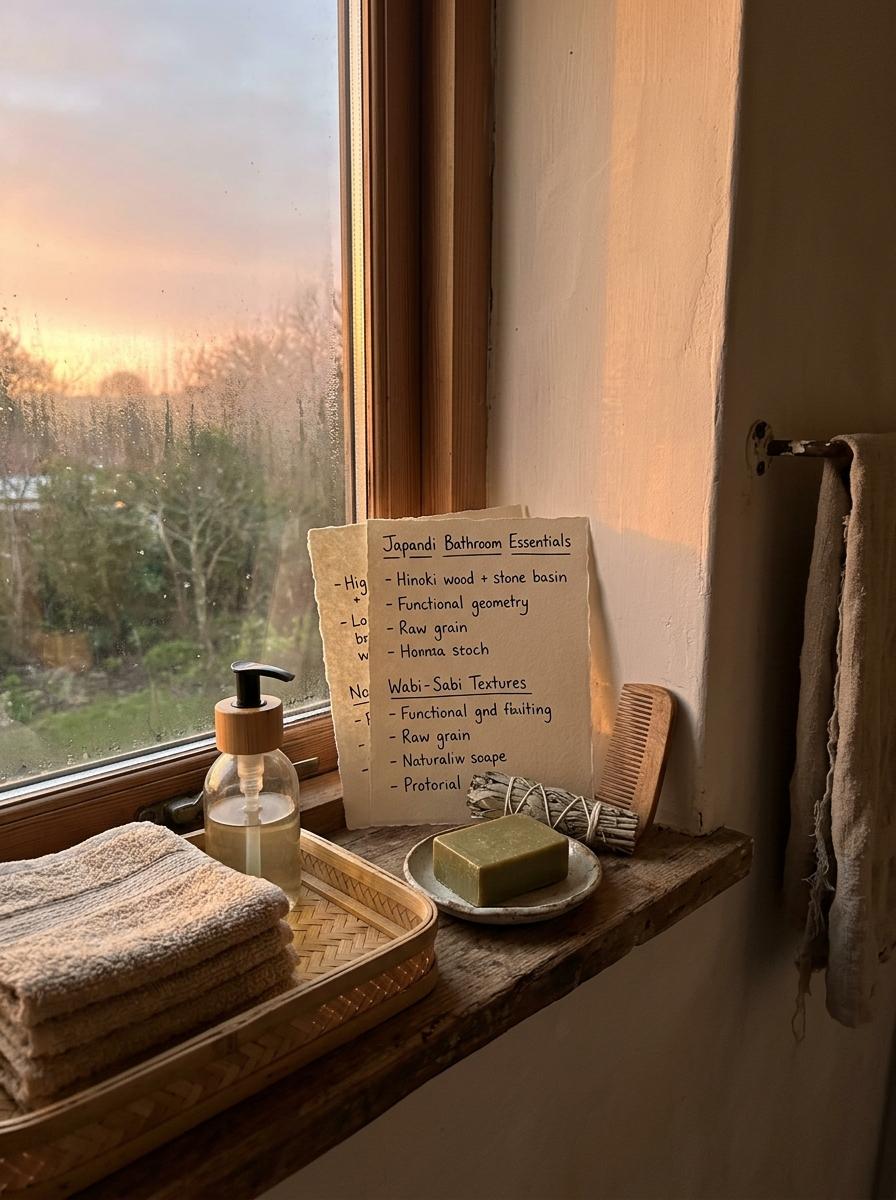 Japandi Bathroom Essentials
- Hinoki wood + stone basin
- Functional geometry
- Raw grain
- Honma stoch
Wabi-Sabi Textures
- Functional gnd
- Raw grain
- Naturaliw soape
- Protorial
- Hig
+
- Lo
br
w
No
-
-
-